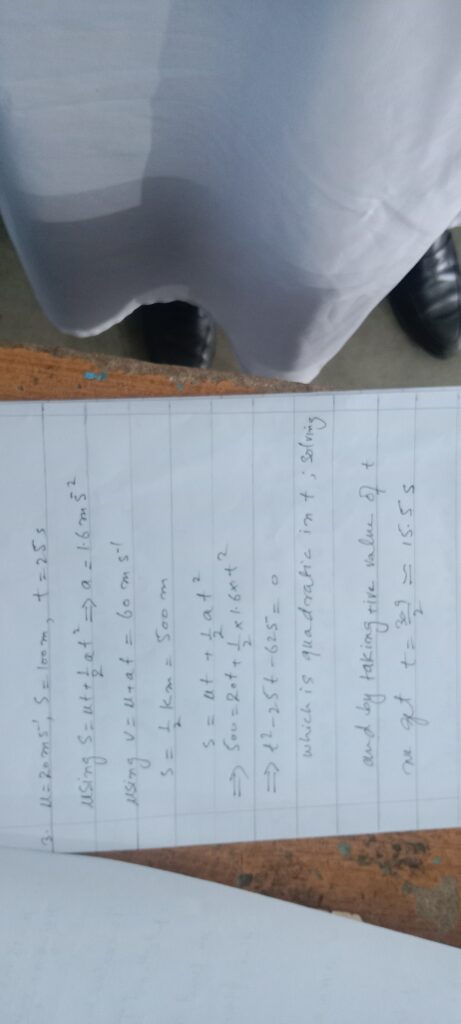 3. u = 20 ms⁻¹, S = 100m, t = 25 s
using S = ut + 1/2 at² ⇒ a = 1.6 ms⁻²
using v = u + at = 60 ms⁻¹
S = 1/2 Km = 500 m
S = ut + 1/2 at²
⇒ 500 = 20t + 1/2 × 1.6 × t²
⇒ t² - 25t - 625 = 0
which is quadratic in t ; solving
and by taking +ive value of t
we get t = 30.9/2 = 15.5 s